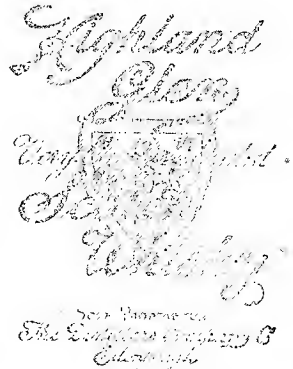 Highland
Glen
Very
Scotch
Whisky
Sole Proprietors
The Distillers Company
Edinburgh